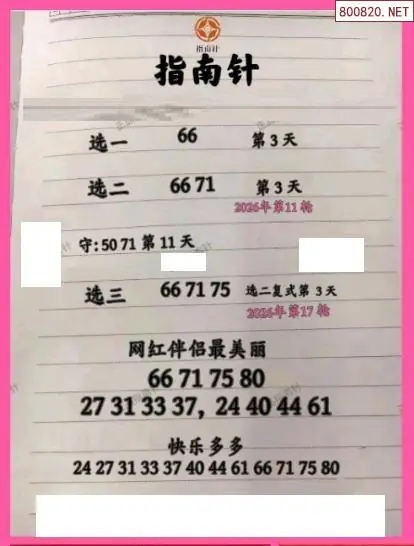 800820.NET
指南针
指南针
选一 66 第3天
选二 66 71 第3天
2026年第11轮
守:50 71 第11天
选三 66 71 75 选二复式第3天
2026年第17轮
网红伴侣最美丽
66 71 75 80
27 31 33 37, 24 40 44 61
快乐多多
24 27 31 33 37 40 44 61 66 71 75 80